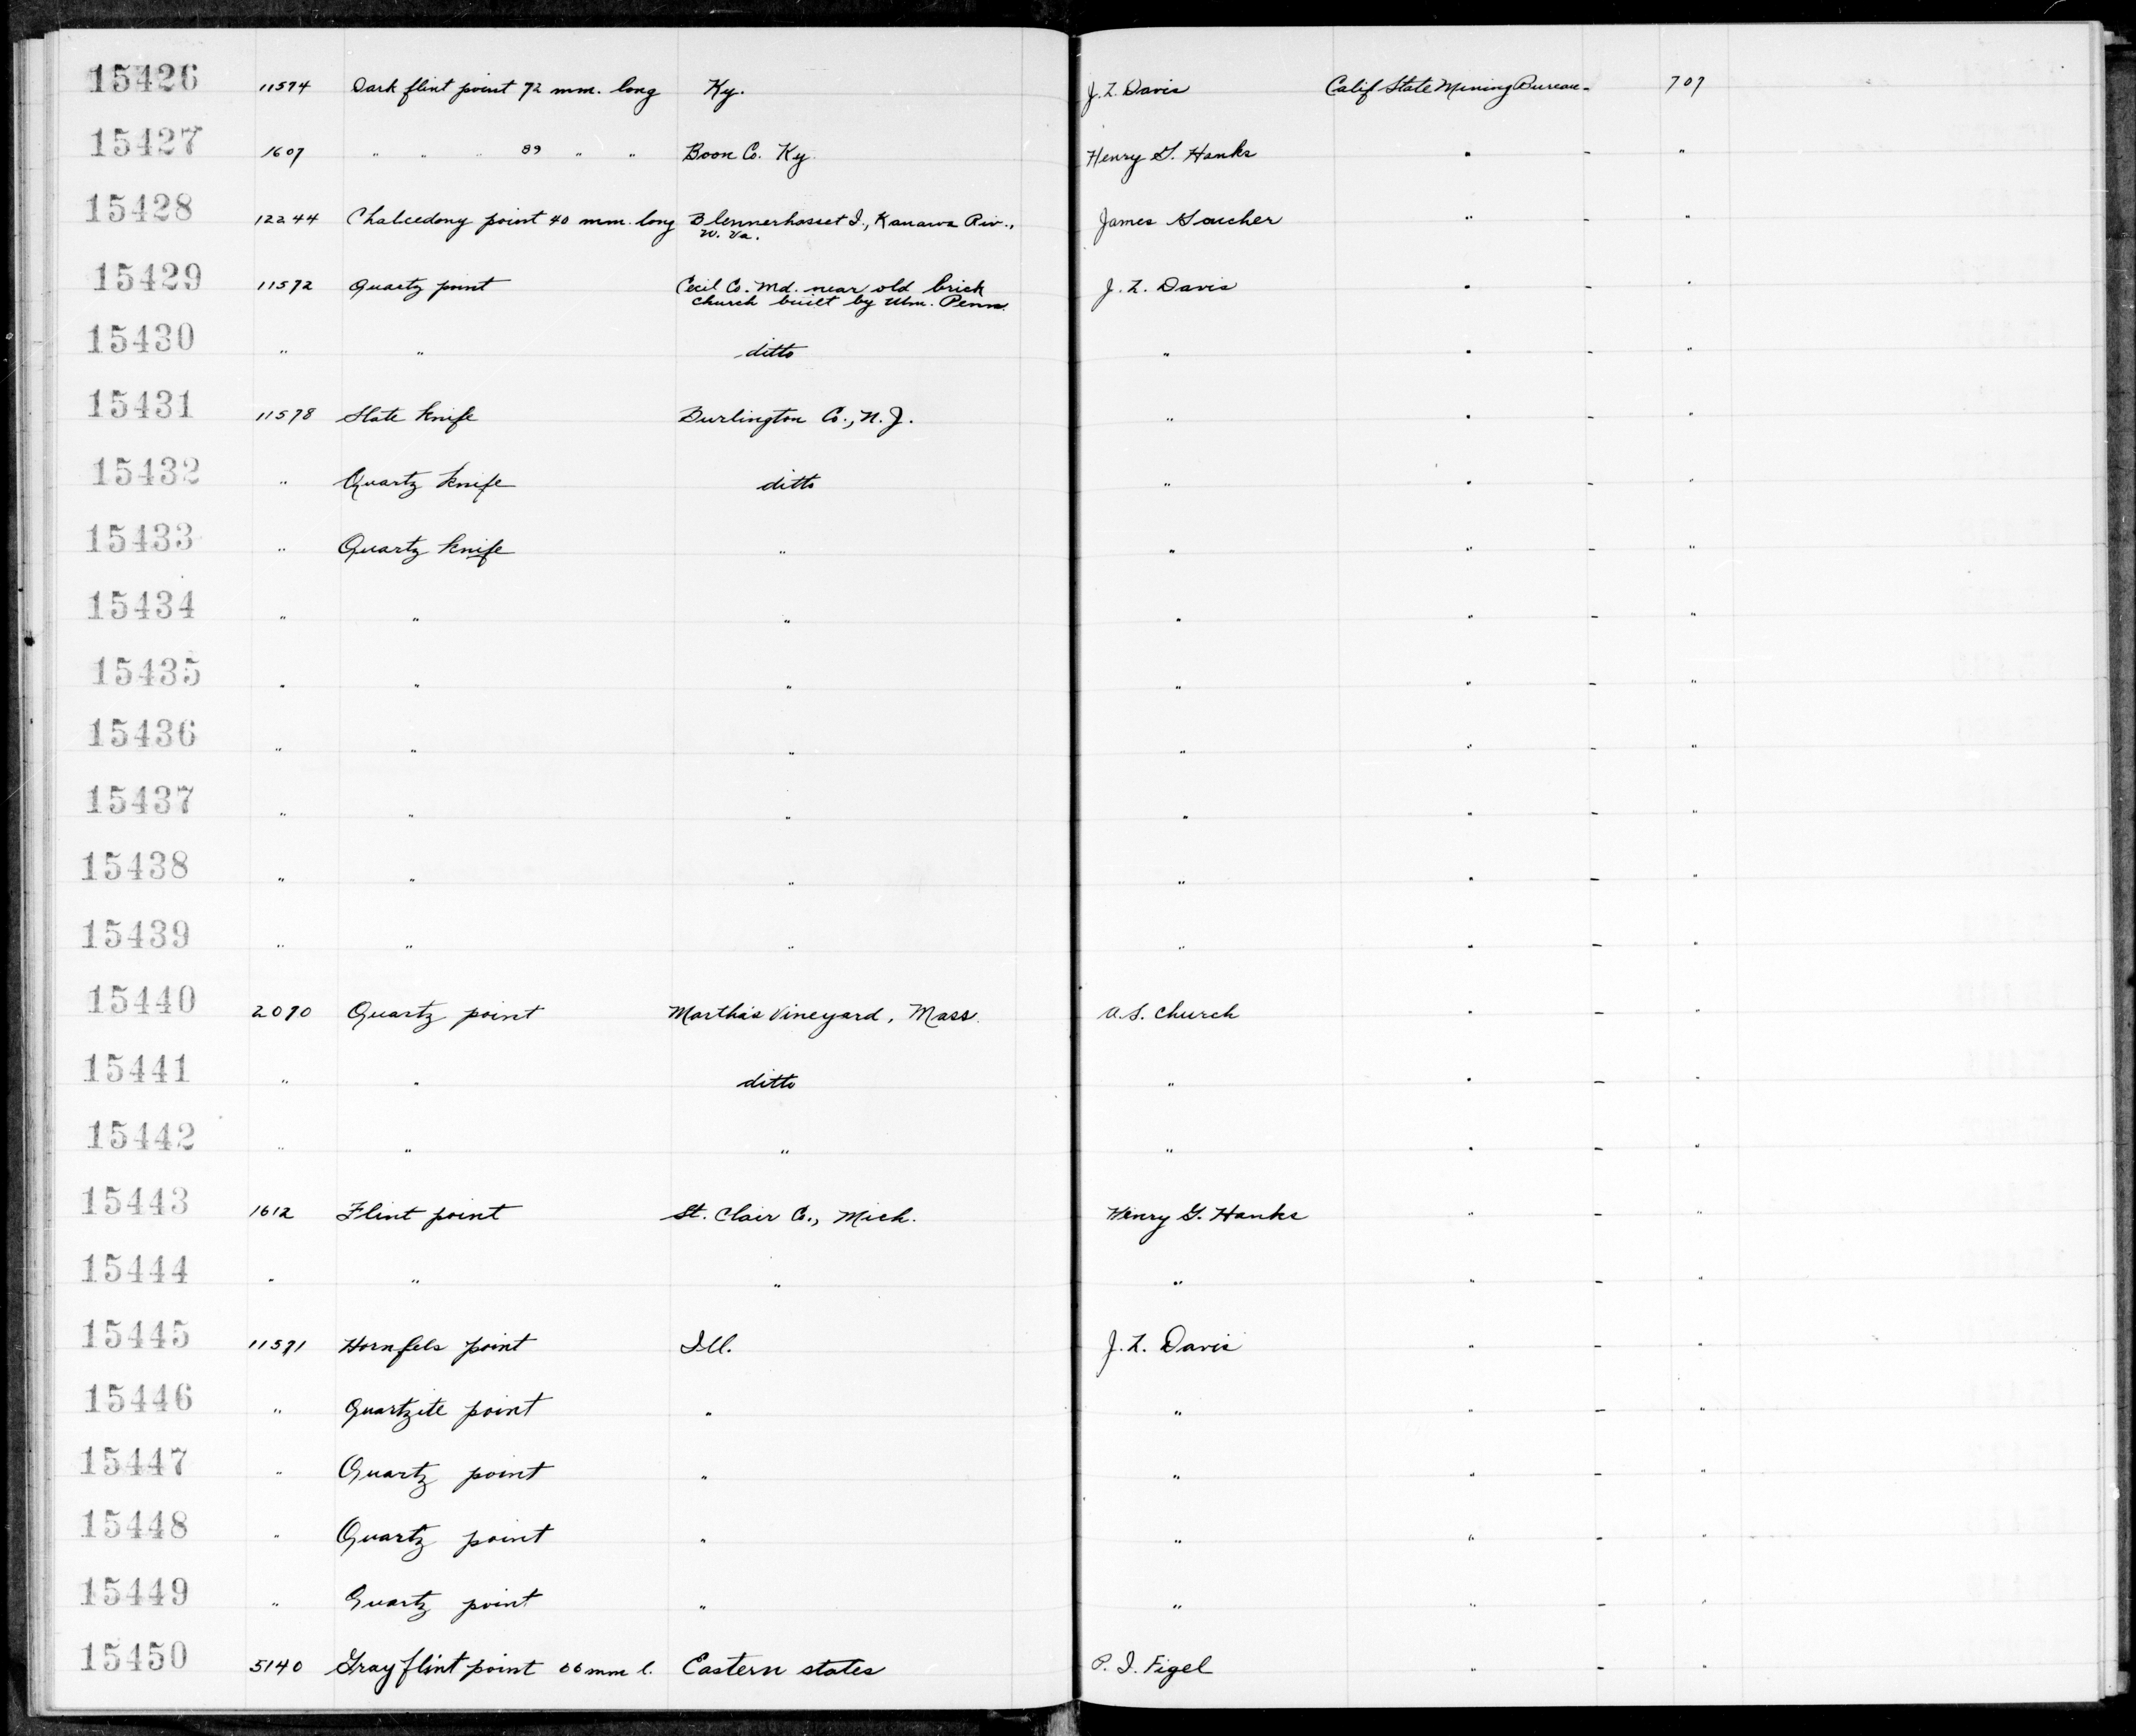 15426 11574 Dark flint point 72 mm. long Ky. J. Z. Davis Calif State Mining Bureau - 707
15427 1607 " " " 89 " " Boon Co. Ky. Henry G. Hanks " - "
15428 12244 Chalcedony point 40 mm. long Blennerhasset I., Kanawa Riv., James " - "
W. Va.
15429 11572 Quartz point Cecil Co. Md. near old brick J. Z. Davis " - "
church built by Wm. Penn.
15430 " " ditto " " - "
15431 11578 Slate knife Burlington Co., N. J. " " - "
15432 " Quartz knife ditto " " - "
15433 " Quartz knife " " " - "
15434 " " " " " - "
15435 " " " " " - "
15436 " " " " " - "
15437 " " " " " - "
15438 " " " " " - "
15439 " " " " " - "
15440 2070 Quartz point Martha's Vineyard, Mass. A. S. Church " - "
15441 " " ditto " " - "
15442 " " " " " - "
15443 1612 Flint point St. Clair Co., Mich. Henry G. Hanks " - "
15444 " " " " " - "
15445 11571 Hornfels point Ill. J. Z. Davis " - "
15446 " Quartzite point " " " - "
15447 " Quartz point " " " - "
15448 " Quartz point " " " - "
15449 " Quartz point " " " - "
15450 5140 Gray flint point mm l. Eastern states P. I. Figel " - "